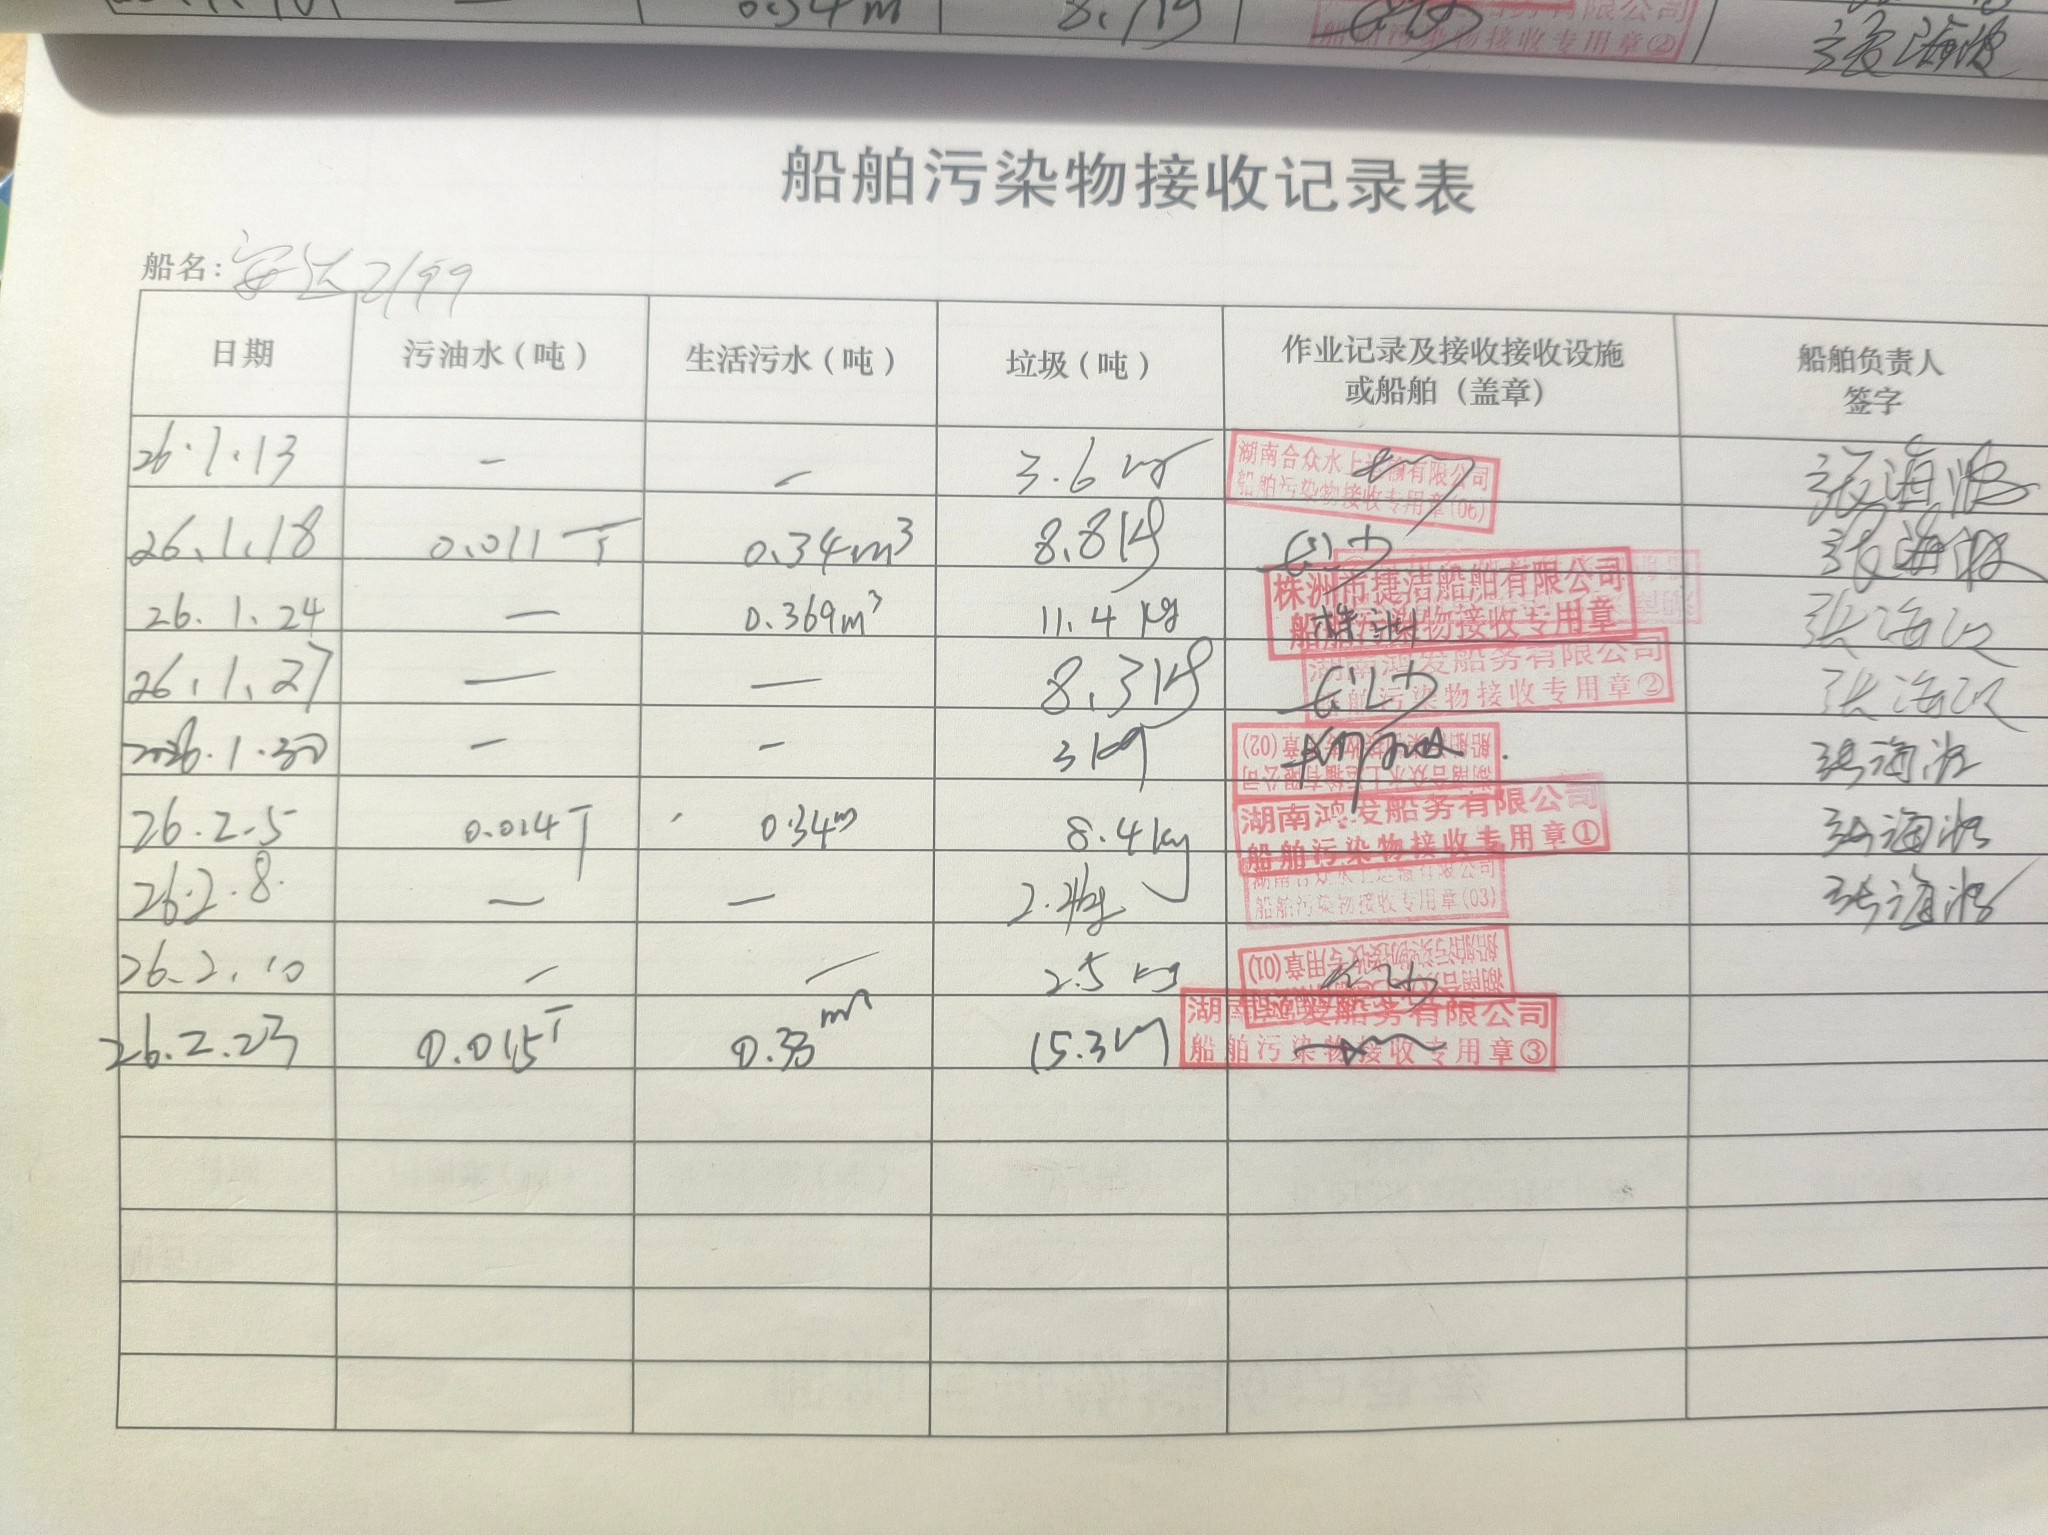 0.34m
船舶污染物接收专用章②
张海波
船舶污染物接收记录表
船名: 安达2199
日期 污油水(吨) 生活污水(吨) 垃圾(吨) 作业记录及接收接收设施或船舶(盖章) 船舶负责人签字
26.1.13 — — 3.6 kg 湖南合众水上运输有限公司 船舶污染物接收专用章(06) 张海波
26.1.18 0.011 T 0.34m³ 8.8kg 张海波
26.1.24 — 0.369m³ 11.4 kg 株洲市捷洁船舶有限公司 船舶污染物接收专用章 株洲 张海波
26.1.27 — — 8.3kg 湖南鸿发船务有限公司 船舶污染物接收专用章② 张海波
2026.1.30 — — 3kg 湖南合众水上运输有限公司 船舶污染物接收专用章(02) 张海波
26.2.5 0.014T 0.34m 8.4kg 湖南鸿发船务有限公司 船舶污染物接收专用章① 张海波
26.2.8. — — 湖南合众水上运输有限公司 船舶污染物接收专用章(03) 张海波
26.2.10 — — 2.5 kg 船舶污染物接收专用章(01)
26.2.23 0.015T 0.33 15.3 湖南鸿发船务有限公司 船舶污染物接收专用章③